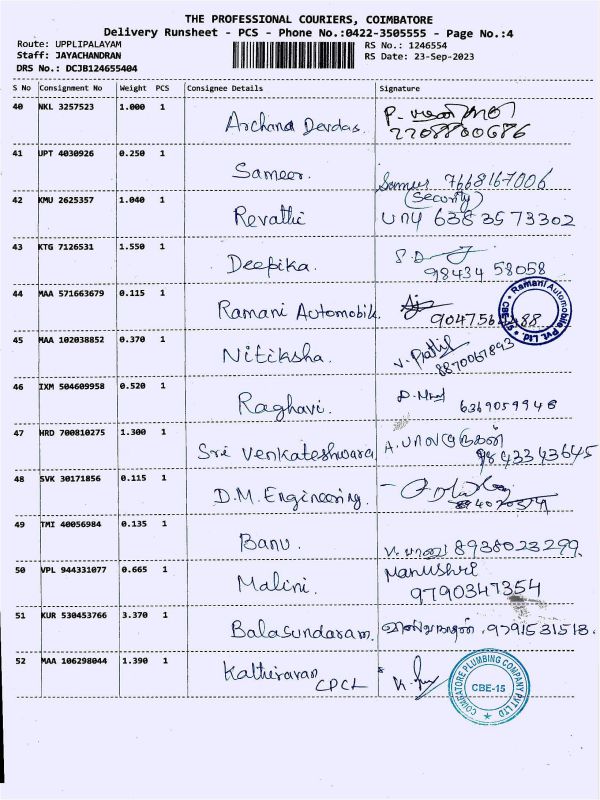 THE PROFESSIONAL COURIERS, COIMBATORE
Delivery Runsheet - PCS - Phone No.:0422-3505555 - Page No.:4
Route: UPPLIPALAYAM
Staff: JAYACHANDRAN
DRS No.: DCJB124655404
RS No.: 1246554
RS Date: 23-Sep-2023
S No Consignment No Weight PCS Consignee Details Signature
40 NKL 3257523 1.000 1 Archana Devdas.
2208800686
41 UPT 4030926 0.250 1 Sameer.
Sameer 7668167006
(Security)
42 KMU 2625357 1.040 1 Revathi
6383573302
43 KTG 7126531 1.550 1 Deepika.
98434 58058
44 MAA 571663679 0.115 1 Ramani Automobile.
Ramani Automobile Pvt. Ltd. CBE
45 MAA 102038852 0.370 1 Nitiksha.
8870067893
46 IXM 504609958 0.520 1 Raghavi.
6369059946
47 HRD 700810275 1.300 1 Sri Venkateshwara
A. பாலமுருகன்
9843343645
48 SVK 30171856 0.115 1 D.M. Engineering.
49 TMI 40056984 0.135 1 Banu.
8938023299
50 VPL 944331077 0.665 1 Malini.
Manushri
9790347354
51 KUR 530453766 3.370 1 Balasundaram.
9791531518.
52 MAA 106298044 1.390 1 Kathiravan
CPCL
COIMBATORE PLUMBING COMPANY PVT LTD
CBE-15